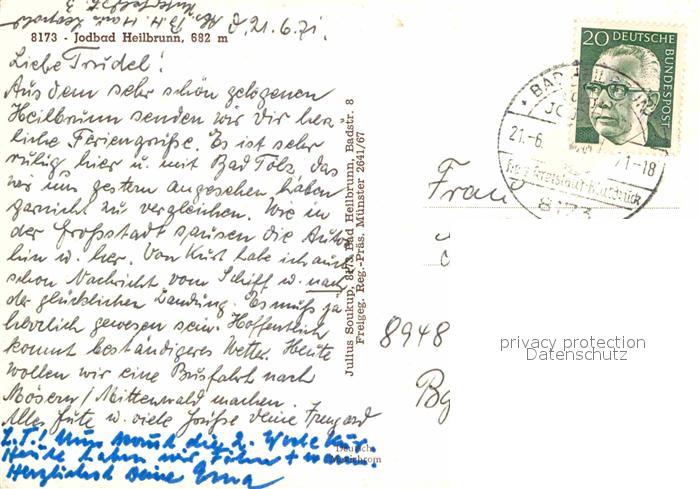 8173 - Jodbad Heilbrunn, 682 m
d. 21.6.71.
Liebe Trudel!
Aus dem sehr schön gelegenen
Heilbrunn senden wir Dir herz-
liche Feriengrüße. Es ist sehr
ruhig hier u. mit Bad Tölz, das
wir uns gestern angesehen haben
garnicht zu vergleichen. Wie in
der Großstadt sausen die Autos
hin u. her. Von Kurt habe ich auch
schon Nachricht vom Schiff u. nach
der glücklichen Landung. Es muß ja
herrlich gewesen sein. Hoffentlich
kommt beständigeres Wetter. Heute
wollen wir eine Busfahrt nach
Mösern/Mittenwald machen.
Alles Gute u. viele Grüße Deine Irmgard
L.T.! Nun die 2. Woche
Heute haben wir Föhn +
Herzlichst Deine Erna
Julius Soukup, 8173 Bad Heilbrunn, Badstr. 8
Freigeg. Reg.-Präs. Münster 2641/67
20 DEUTSCHE
BUNDESPOST
BAD
21.-6.
71-18
8173
Frau
8948
privacy protection
Datenschutz